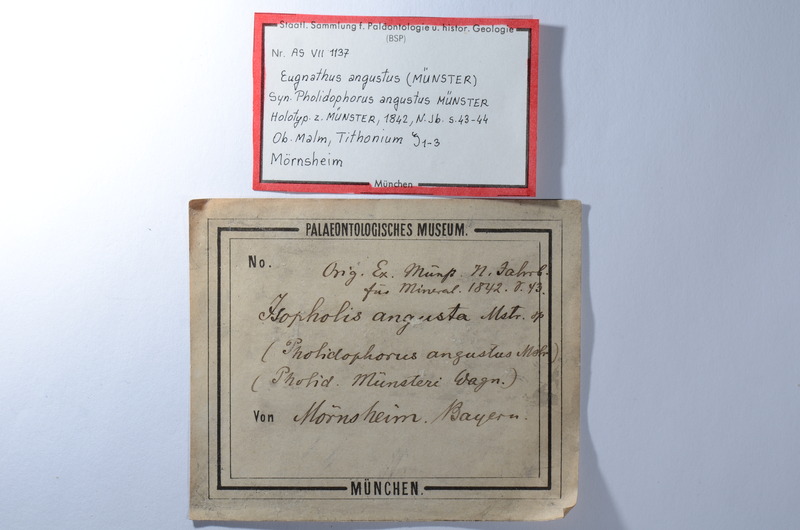 Staatl. Sammlung f. Paläontologie u. histor. Geologie
(BSP)
Nr. AS VII 1137
Eugnathus angustus (MÜNSTER)
Syn. Pholidophorus angustus MÜNSTER
Holotyp. z. MÜNSTER, 1842, N. Jb. S. 43-44
Ob. Malm, Tithonium ζ1-3
Mörnsheim
München
PALAEONTOLOGISCHES MUSEUM.
No.
Orig. Ex. Münst. N. Jahrb.
für Mineral. 1842. S. 43.
Isopholis angusta Mstr. sp
(Pholidophorus angustus Mstr.)
(Pholid. Münsteri Wagn.)
Von Mörnsheim. Bayern.
MÜNCHEN.